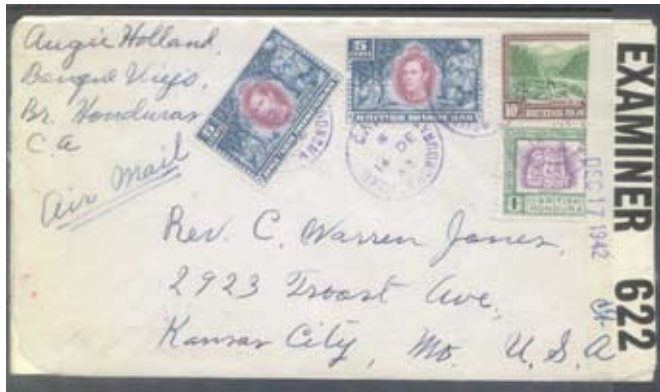 Augie Holland,
Benque Viejo,
Br. Honduras
C. A
Air Mail
5
5
BRITISH HONDURAS
10
1
BRITISH
HONDURAS
14 DE
DEC 17 1942
EXAMINER 622
Rev. C. Warren Jones,
2923 Troost Ave,
Kansas City, Mo. U.S.A